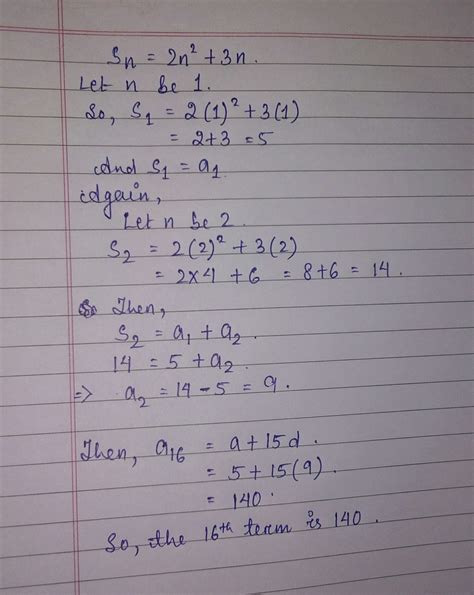 Sn = 2n² + 3n.
Let n be 1.
So, S₁ = 2(1)² + 3(1)
= 2+3 = 5
And S₁ = a₁.
Again,
Let n be 2.
S₂ = 2(2)² + 3(2)
= 2×4 + 6 = 8+6 = 14.
Then,
S₂ = a₁ + a₂.
14 = 5 + a₂
=> a₂ = 14 - 5 = 9.
Then, a₁₆ = a + 15d.
= 5 + 15(9)
= 140.
So, the 16th term is 140.